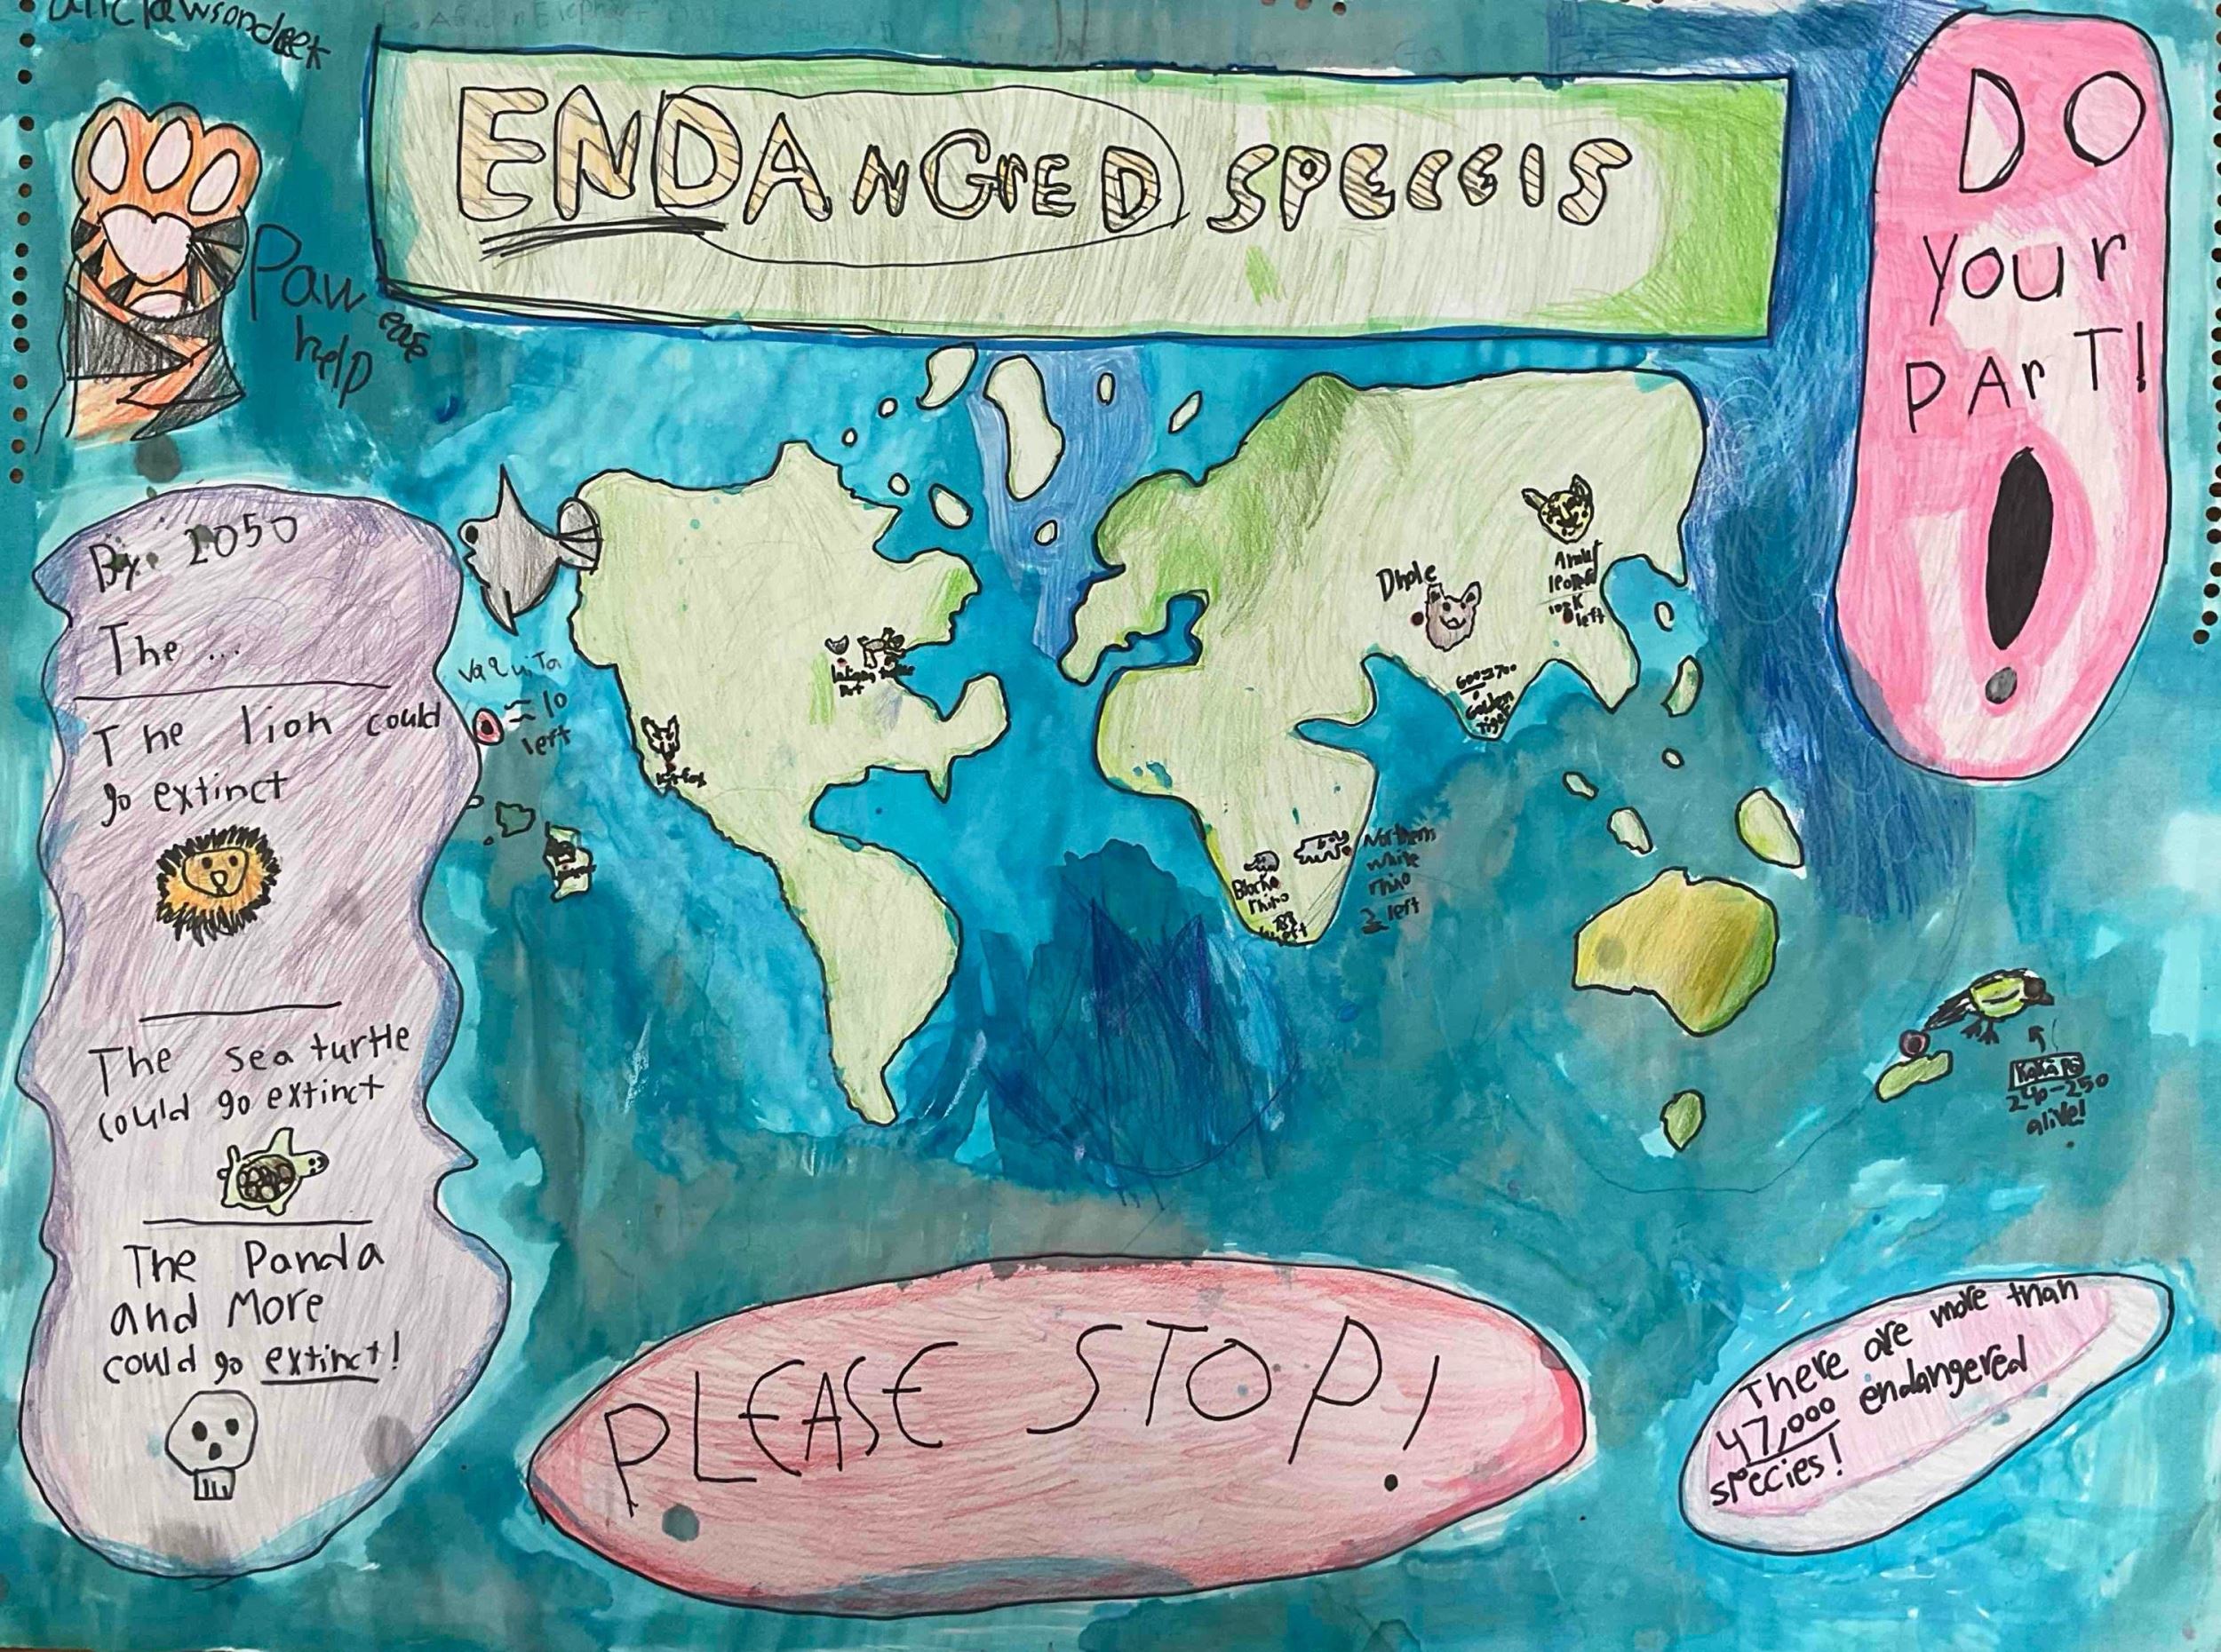 ENDANGRED SPECEIS
DO
Your
PArT!
Paw
ease
help
By 2050
The ...
The lion could
go extinct
The sea turtle
could go extinct
The Panda
and More
could go extinct!
VaquiTa
≈ 10
left
Kit fox
Dhole
left
600 700
Golden
Tiger
rhino
left
Northern
white
rhino
2 left
240-250
alive!
PLEASE STOP!
There are more than
47,000 endangered
species!